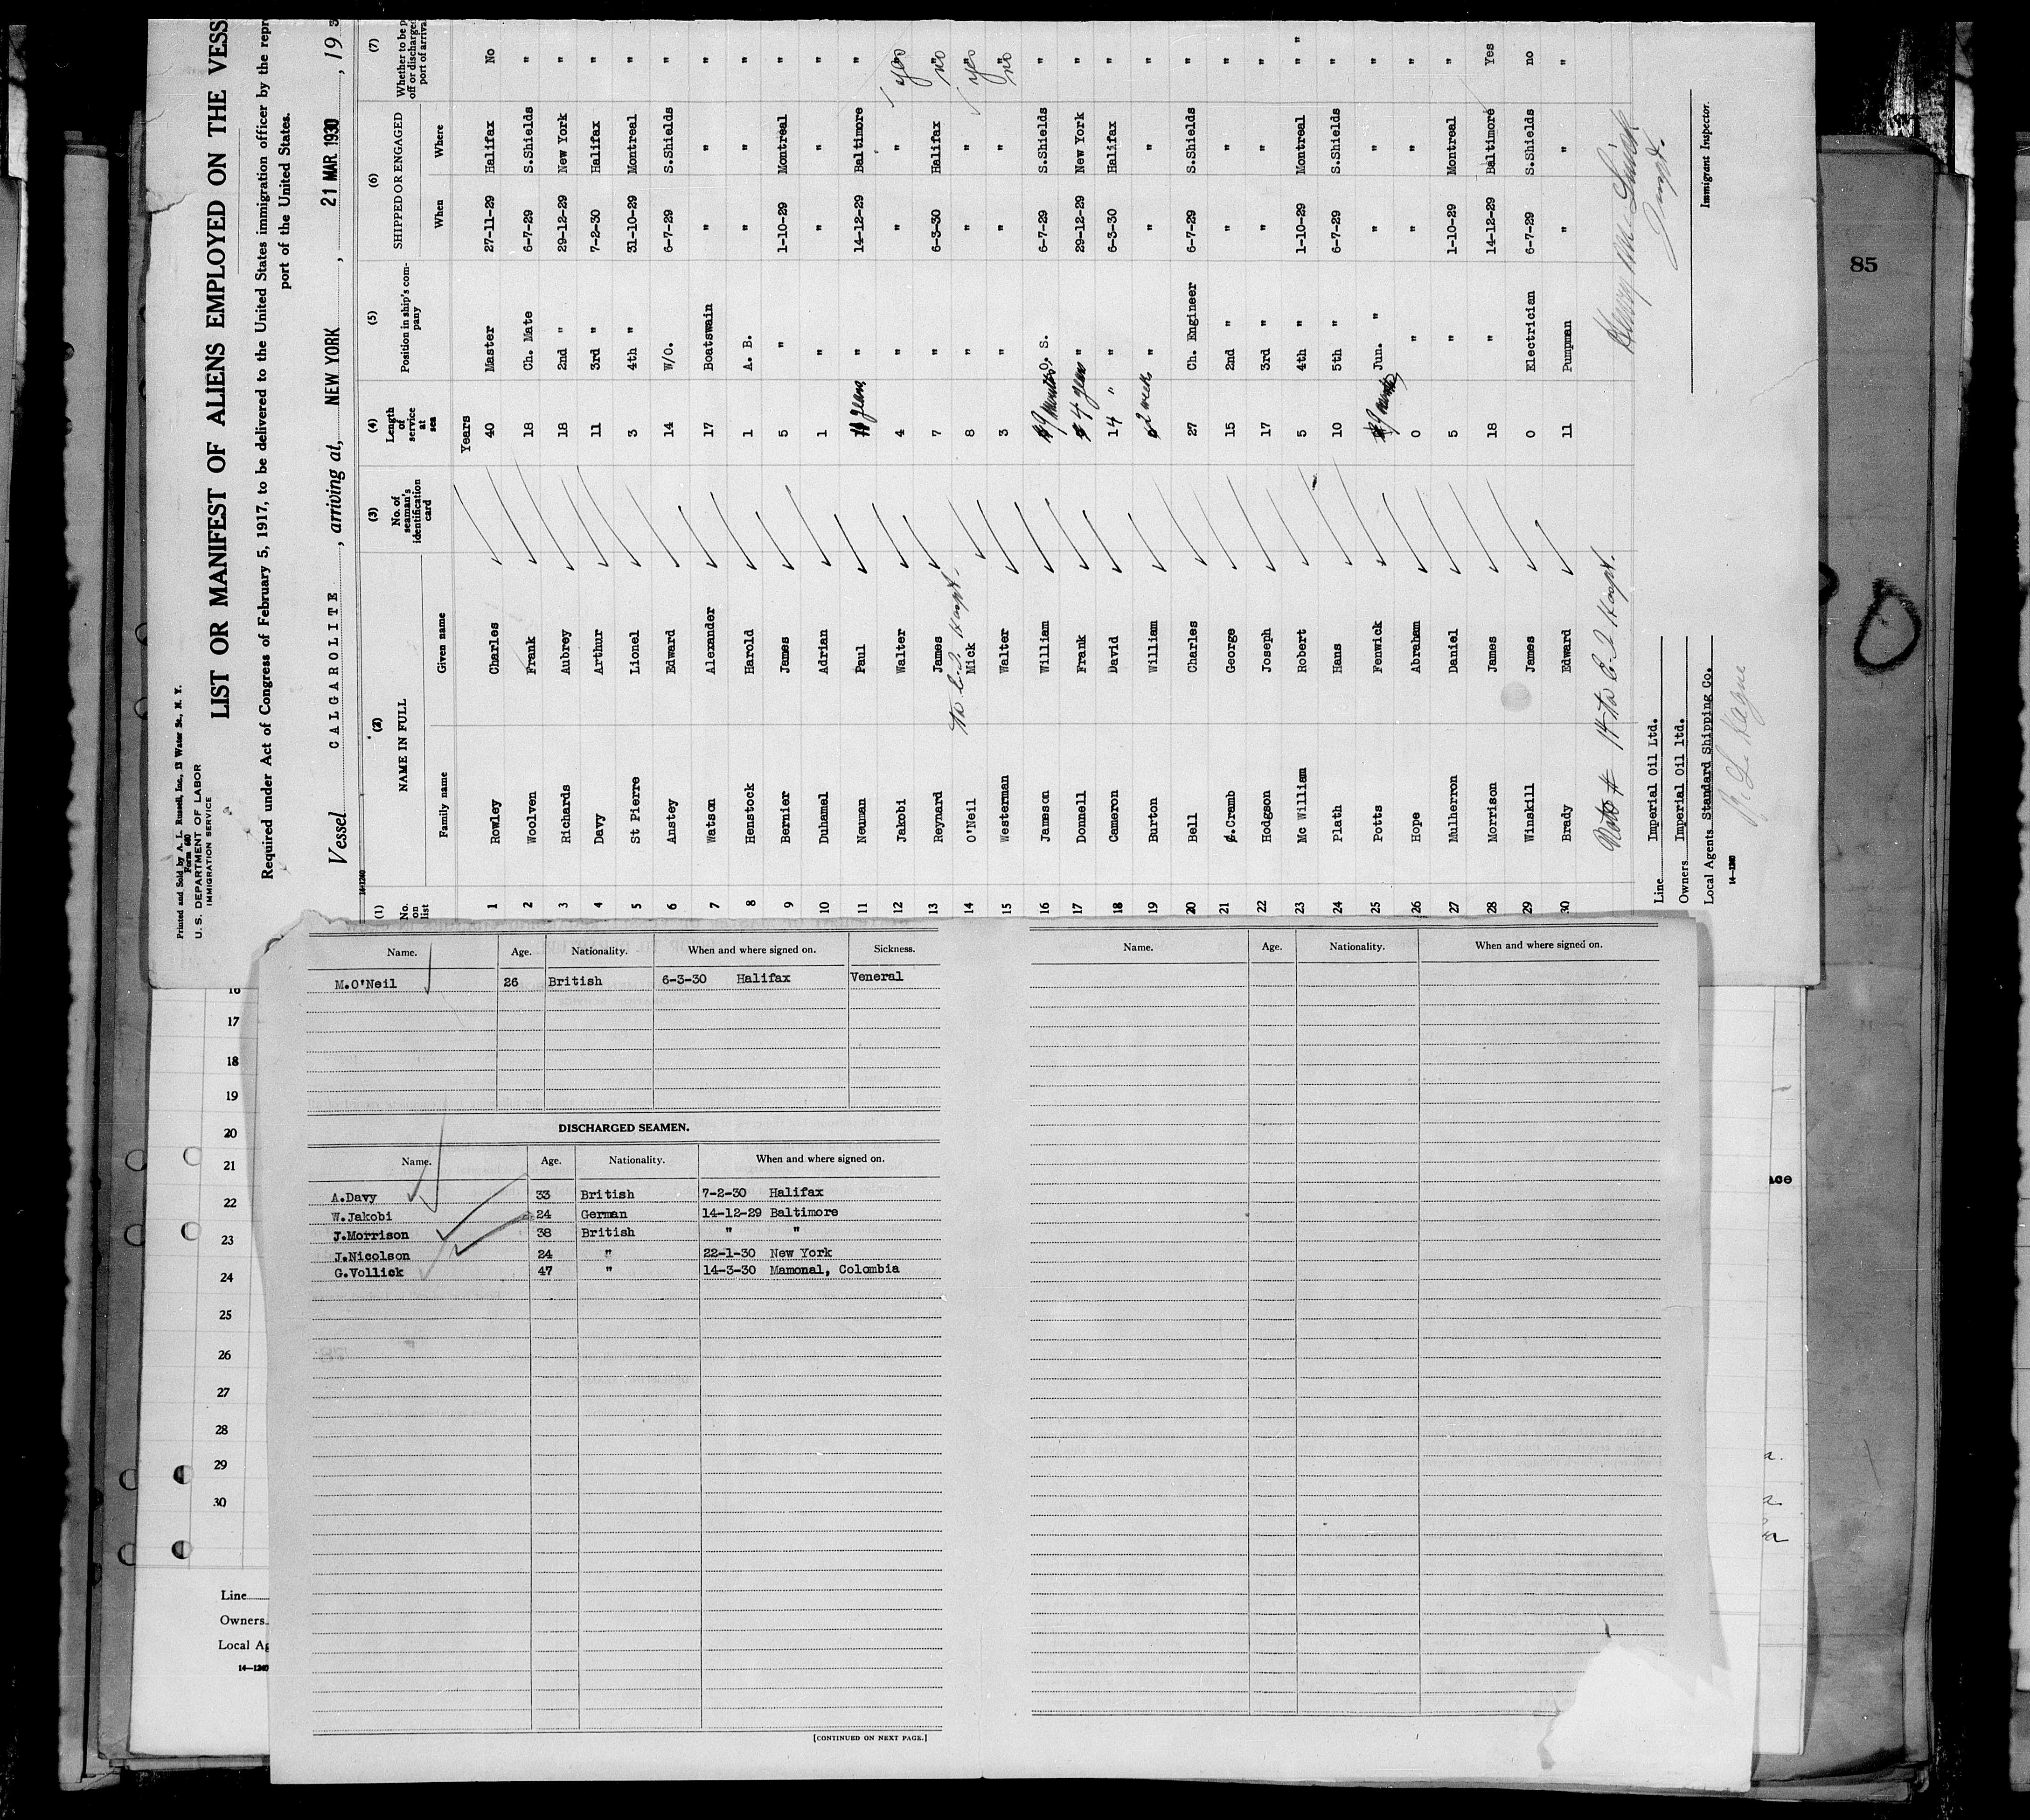 Printed and Sold by A. L. Russell, Inc., 13 Water St., N. Y.
Form 680
U. S. DEPARTMENT OF LABOR
IMMIGRATION SERVICE
LIST OR MANIFEST OF ALIENS EMPLOYED ON THE VESS
Required under Act of Congress of February 5, 1917, to be delivered to the United States immigration officer by the repr
port of the United States.
Vessel CALGAROLITE, arriving at, NEW YORK, 21 MAR 1930, 19 3
14-1240
(1) (2) (3) (4) (5) (6) (7)
No. on list NAME IN FULL No. of seaman's identification card Length of service at sea Position in ship's company SHIPPED OR ENGAGED Whether to be p off or discharged port of arrival
Family name Given name When Where
Years
1 Rowley Charles 40 Master 27-11-29 Halifax No
2 Woolven Frank 18 Ch. Mate 6-7-29 S.Shields "
3 Richards Aubrey 18 2nd " 29-12-29 New York "
4 Davy Arthur 11 3rd " 7-2-30 Halifax "
5 St Pierre Lionel 3 4th " 31-10-29 Montreal "
6 Anstey Edward 14 W/O. 6-7-29 S.Shields "
7 Watson Alexander 17 Boatswain " " "
8 Henstock Harold 1 A. B. " " "
9 Bernier James 5 " 1-10-29 Montreal "
10 Duhamel Adrian 1 " " " "
11 Neuman Paul years " 14-12-29 Baltimore "
12 Jakobi Walter 4 " " " yes
13 Reynard James 7 " 6-3-30 Halifax no
To E.I. Hospt.
14 O'Neil Mick 8 " " " yes
15 Westerman Walter 3 " " " no
16 Jameson William 9 months O. S. 6-7-29 S.Shields "
17 Donnell Frank 4 years " 29-12-29 New York "
18 Cameron David 14 " " 6-3-30 Halifax "
19 Burton William 2 weeks " " " "
20 Bell Charles 27 Ch. Engineer 6-7-29 S.Shields "
21 Cramb George 15 2nd " " " "
22 Hodgson Joseph 17 3rd " " " "
23 Mc William Robert 5 4th " 1-10-29 Montreal " "
24 Plath Hans 10 5th " 6-7-29 S.Shields "
25 Potts Fenwick 9 months Jun. " " " "
26 Hope Abraham 0 " " " "
27 Mulherron Daniel 5 " 1-10-29 Montreal "
28 Morrison James 18 " 14-12-29 Baltimore Yes
29 Winskill James 0 Electrician 6-7-29 S.Shields no
30 Brady Edward 11 Pumpman " " "
Note # 14 to E. I. Hospt.
Line Imperial Oil Ltd.
Owners Imperial Oil ltd.
Local Agents Standard Shipping Co.
Immigrant Inspector.
14-1240
85
Name. Age. Nationality. When and where signed on. Sickness.
M.O'Neil 26 British 6-3-30 Halifax Veneral
DISCHARGED SEAMEN.
Name. Age. Nationality. When and where signed on.
A.Davy 33 British 7-2-30 Halifax
W.Jakobi 24 German 14-12-29 Baltimore
J.Morrison 38 British " "
J.Nicolson 24 " 22-1-30 New York
G.Vollick 47 " 14-3-30 Mamonal, Colombia
[CONTINUED ON NEXT PAGE.]
Name. Age. Nationality. When and where signed on.
16
17
18
19
20
21
22
23
24
25
26
27
28
29
30
Line
Owners
Local Ag
14-1240